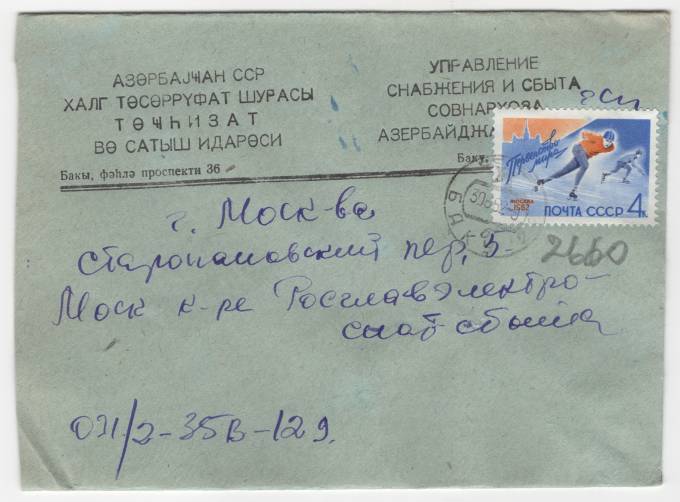 АЗӘРБАЈҸАН ССР
ХАЛГ ТӘСӘРРҮФАТ ШУРАСЫ
ТӘҸҺИЗАТ
ВӘ САТЫШ ИДАРӘСИ
Бакы, фәһлә проспекти 36
УПРАВЛЕНИЕ
СНАБЖЕНИЯ И СБЫТА
СОВНАРХОЗА
АЗЕРБАЙДЖА
Баку,
Первенство
мира
МОСКВА
1962
ПОЧТА СССР 4к
2660
г. Москва
Старопановский пер, 5
Моск к-ре Росглавэлектро-
снаб-сбыта
ОЭ1/2-35В-129.